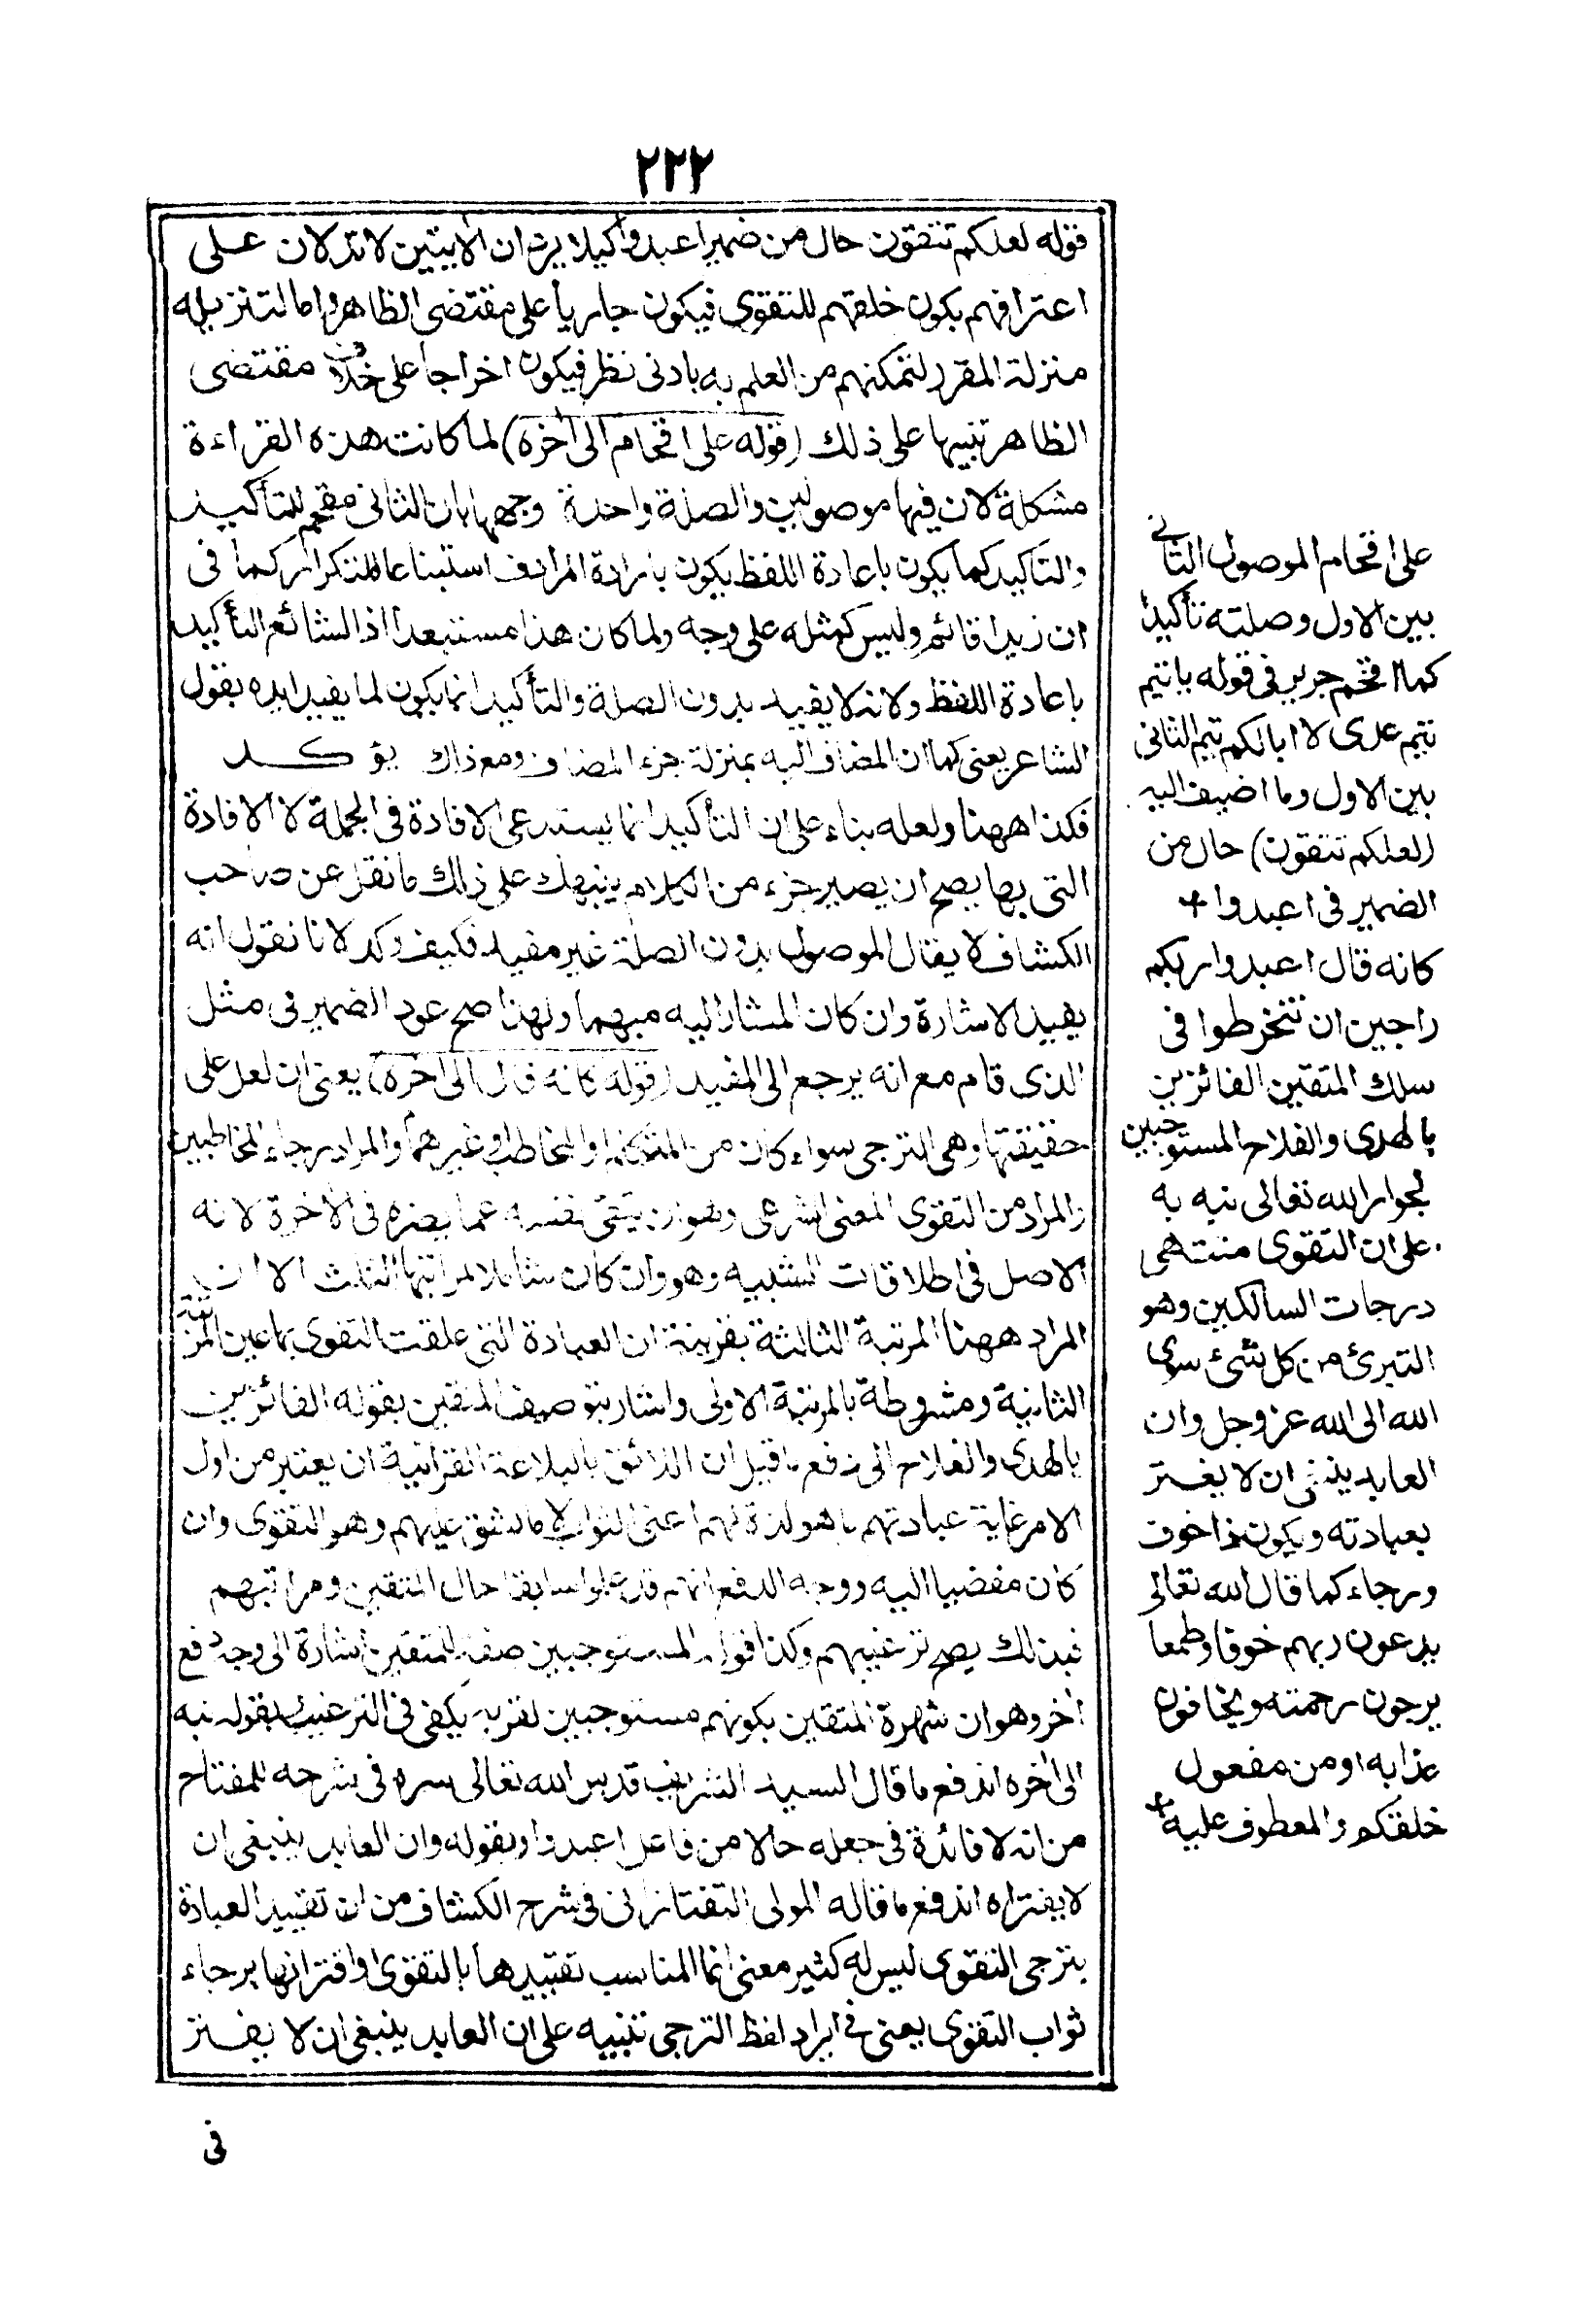 ٢٢٢
قوله لعلكم تتقون حال من ضمير اعبدوا كيلا يرد ان الآيتين لا تدلان على
اعترافهم بكون خلقهم للتقوى فيكون جاريا على مقتضى الظاهر واما لتنزيله
منزلة المقرر لتمكنهم من العلم به بادنى نظر فيكون اخراجا على خلاف مقتضى
الظاهر تنبيها على ذلك (قوله على اقحام الى آخره) لما كانت هذه القراءة
مشكلة لان فيها موصولين والصلة واحدة وجهها بان الثانى مقحم للتأكيد
والتأكيد كما يكون باعادة اللفظ يكون بارادة المرادف استبشاعا للتكرار كما فى
ان زيدا قائم وليس كمثله على وجه ولما كان هذا مستبعدا اذ الشائع التأكيد
باعادة اللفظ ولانه لا يفيد بدون الصلة والتأكيد انما يكون لما يفيد ايده بقول
الشاعر يعنى كما ان المضاف اليه بمنزلة جزء المضاف ومع ذلك يؤكد
فكذا ههنا ولعله بناء على ان التأكيد انما يستدعى الافادة فى الجملة لا الافادة
التى بها يصح ان يصير جزء من الكلام ينبهك على ذلك ما نقل عن صاحب
الكشاف لا يقال الموصول بدون الصلة غير مفيد فكيف وكد لانا نقول انه
يفيد الاشارة وان كان المشار اليه مبهما ولهذا صح عود الضمير فى مثل
الذى قام مع انه يرجع الى المفيد (قوله كانه قال الى آخره) يعنى ان لعل على
حقيقتها وهى الترجى سواء كان من المتكلم او المخاطب او غيرهما والمراد رجاء المخاطبين
والمراد من التقوى المعنى الشرعى وهو ان يتقى نفسه عما يضره فى الآخرة لانه
الاصل فى اطلاقات الشبيه وهو وان كان شاملا لمراتبها الثلث الا ان
المراد ههنا المرتبة الثالثة بقرينة ان العبادة التى علقت التقوى بها عين المرتبة
الثانية ومشروطة بالمرتبة الاولى واشار بتوصيف المتقين بقوله الفائزين
بالهدى والفلاح الى دفع ما قيل ان اللائق بالبلاغة القرآنية ان يعتبر من اول
الامر غاية عبادتهم ما هو لذة لهم اعنى الثواب لا ما يشق عليهم وهو التقوى وان
كان مفضيا اليه ووجه الدفع انهم قد علموا سابقا حال المتقين ومراتبهم
فبذلك يصح ترغيبهم وكذا قوله المستوجبين صفة للمتقين اشارة الى وجه دفع
آخر وهو ان شهرة المتقين بكونهم مستوجبين لقربه يكفى فى الترغيب بقوله نبه
الى آخره اندفع ما قال السيد الشريف قدس الله تعالى سره فى شرحه للمفتاح
من انه لا فائدة فى جعله حالا من فاعل اعبدوا وبقوله وان العابد ينبغى ان
لا يغتر اه اندفع ما قاله المولى التفتازانى فى شرح الكشاف من ان تقييد العبادة
بترجى التقوى ليس له كثير معنى انما المناسب تقييدها بالتقوى او اقترانها برجاء
ثواب التقوى يعنى فى ايراد لفظ الترجى تنبيه على ان العابد ينبغى ان لا يغتر
فى
على اقحام الموصول الثانى
بين الاول وصلته تأكيدا
كما اقحم جرير فى قوله يا تيم
تيم عدى لا ابالكم تيم الثانى
بين الاول وما اضيف اليه
(لعلكم تتقون) حال من
الضمير فى اعبدوا
كانه قال اعبدوا ربكم
راجين ان تنخرطوا فى
سلك المتقين الفائزين
بالهدى والفلاح المستوجبين
لجوار الله تعالى نبه به
على ان التقوى منتهى
درجات السالكين وهو
التبرئ من كل شئ سوى
الله الى الله عز وجل وان
العابد ينبغى ان لا يغتر
بعبادته ويكون ذا خوف
ورجاء كما قال الله تعالى
يدعون ربهم خوفا وطمعا
يرجون رحمته ويخافون
عذابه او من مفعول
خلقكم والمعطوف عليه